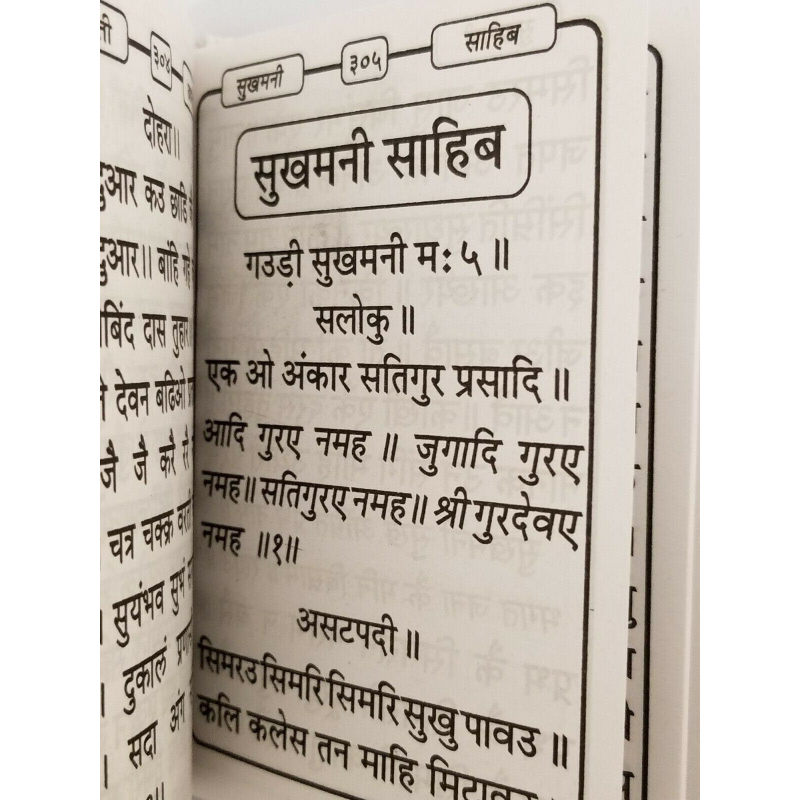 ३०४
दोहरा॥
दुआर कउ छाडि
दुआर॥ बांहि गहे
बिंद दास तुहार
देवन बढिओ
जै जै करै
चत्र चक्क्र
सुयंभव सुभं
दुकालं
सदा अंग
सुखमनी ३०५ साहिब
सुखमनी साहिब
गउड़ी सुखमनी म: ५ ॥
सलोकु ॥
एक ओ अंकार सतिगुर प्रसादि ॥
आदि गुरए नमह ॥ जुगादि गुरए
नमह॥ सतिगुरए नमह॥ श्री गुरदेवए
नमह ॥१॥
असटपदी ॥
सिमरउ सिमरि सिमरि सुखु पावउ ॥
कलि कलेस तन माहि मिटावउ